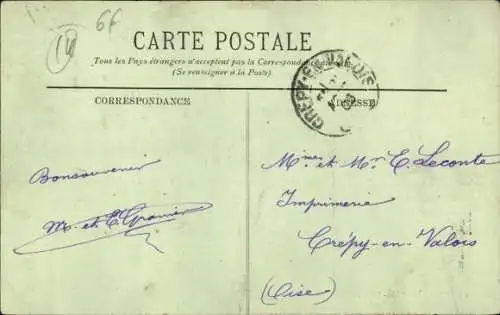 66
14
CARTE POSTALE
Tous les Pays étrangers n'acceptent pas la Correspondance au recto
(Se renseigner à la Poste)
CRÉPY-EN-VALOIS
CORRESPONDANCE
ADRESSE
Bonsouvenir
M. et E. Granier
Mmes et Mr E. Leconte
Imprimerie
Crépy-en-Valois
(Oise)